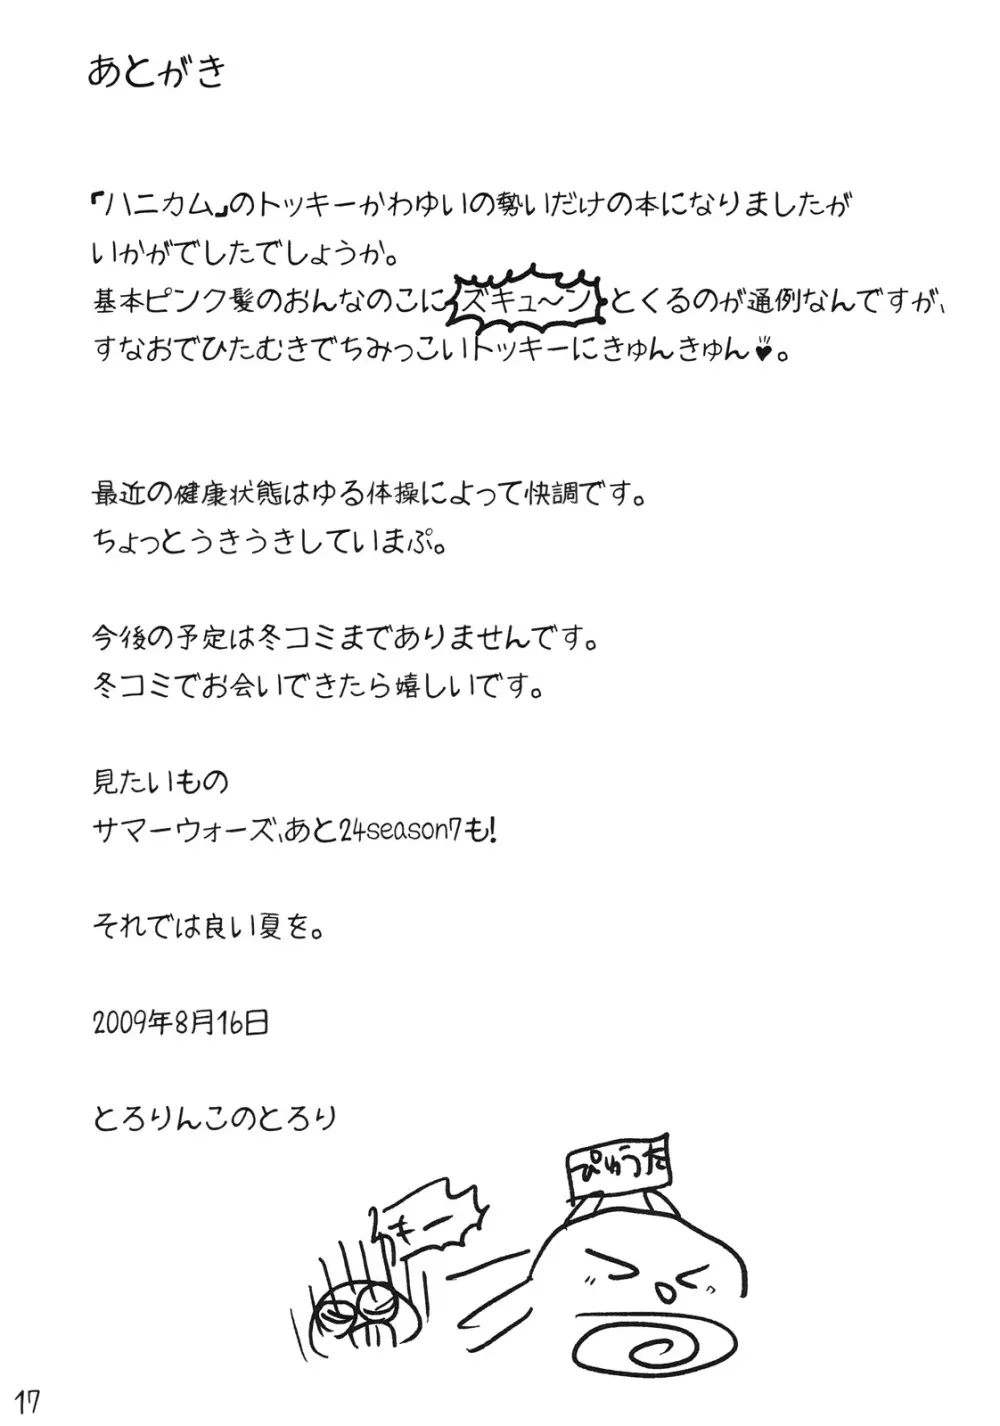 あとがき
『ハニカム』のトッキーかわゆいの勢いだけの本になりましたが
いかがでしたでしょうか。
基本ピンク髪のおんなのこにズキュ〜ンとくるのが通例なんですが、
すなおでひたむきでちみっこいトッキーにきゅんきゅん♥。
最近の健康状態はゆる体操によって快調です。
ちょっとうきうきしていまぷ。
今後の予定は冬コミまでありませんです。
冬コミでお会いできたら嬉しいです。
見たいもの
サマーウォーズ、あと24season7も!
それでは良い夏を。
2009年8月16日
とろりんこのとろり
ぴゅうた
17